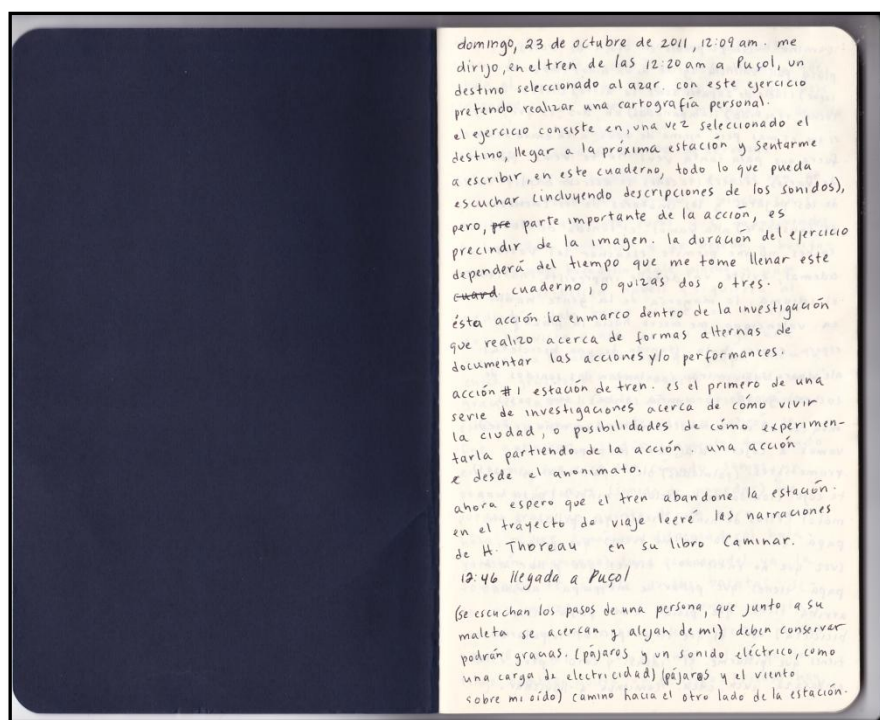 domingo, 23 de octubre de 2011, 12:09 am. me
dirijo, en el tren de las 12:20 am a Puçol, un
destino seleccionado al azar. con este ejercicio
pretendo realizar una cartografía personal.
el ejercicio consiste en, una vez seleccionado el
destino, llegar a la próxima estación y sentarme
a escribir, en este cuaderno, todo lo que pueda
escuchar (incluyendo descripciones de los sonidos),
pero, pre parte importante de la acción, es
precindir de la imagen. la duración del ejercicio
dependerá del tiempo que me tome llenar este
cuard cuaderno, o quizás dos o tres.
ésta acción la enmarco dentro de la investigación
que realizo acerca de formas alternas de
documentar las acciones y/o performances.
acción #1 estación de tren. es el primero de una
serie de investigaciones acerca de cómo vivir
la ciudad, o posibilidades de cómo experimen-
tarla partiendo de la acción. una acción
e desde el anonimato.
ahora espero que el tren abandone la estación.
en el trayecto de viaje leeré las narraciones
de H. Thoreau en su libro Caminar.
12:46 llegada a Puçol
(se escuchan los pasos de una persona, que junto a su
maleta se acercan y alejan de mi) deben conservar
podrán gracias. (pájaros y un sonido eléctrico, como
una carga de electricidad) (pájaros y el viento
sobre mi oído) camino hacia el otro lado de la estación.